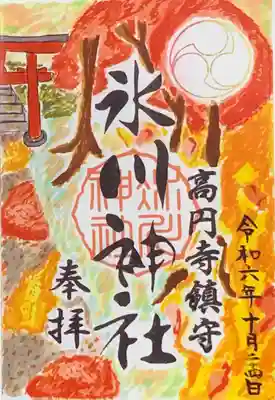 令和六年十月二四日
高円寺鎮守
氷川神社
奉拝